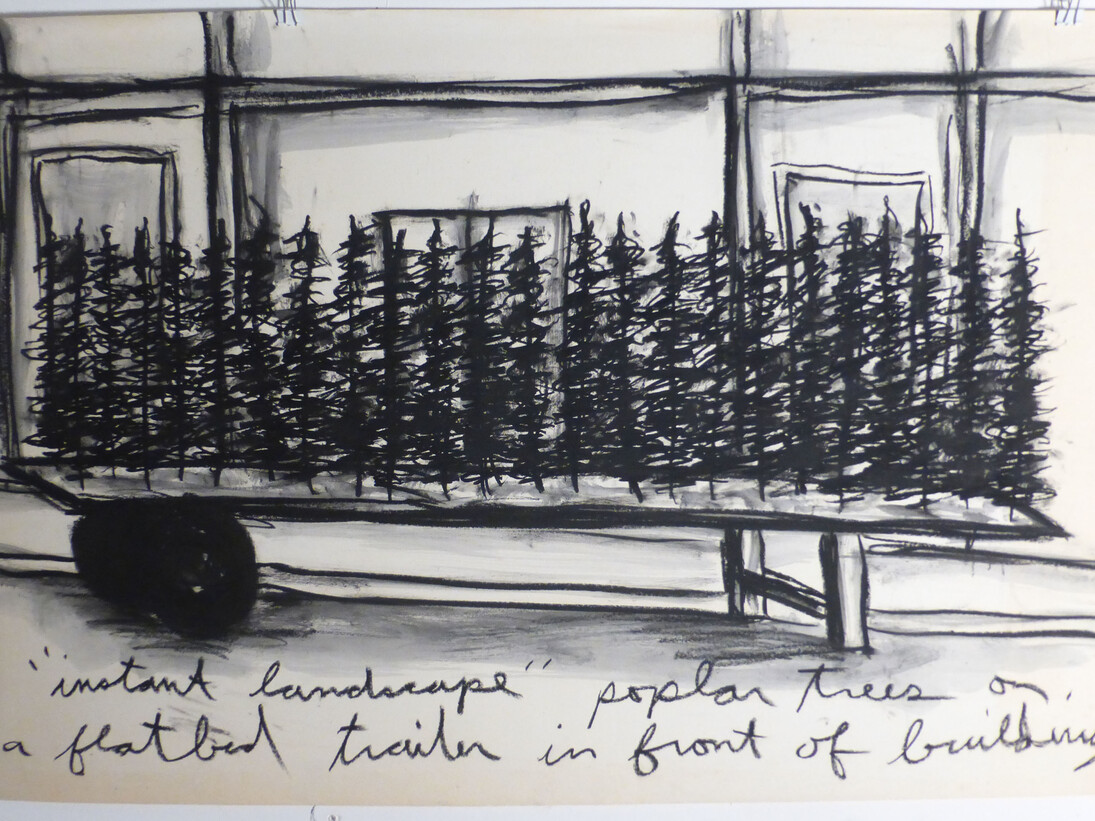 "instant landscape" poplar trees on
a flatbed trailer in front of building